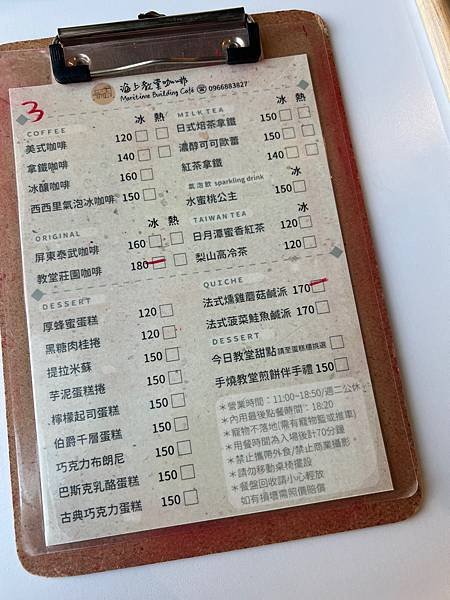 海上教堂咖啡
Maritime Building Café ☎ 0966883827
3
COFFEE 冰 熱
美式咖啡 120
拿鐵咖啡 140
冰釀咖啡 160
西西里氣泡冰咖啡 150
冰 熱
ORIGINAL
屏東泰武咖啡 160
教堂莊園咖啡 180
DESSERT
厚蜂蜜蛋糕 120
黑糖肉桂捲 120
提拉米蘇 150
芋泥蛋糕捲 150
檸檬起司蛋糕 150
伯爵千層蛋糕 150
巧克力布朗尼 150
巴斯克乳酪蛋糕 150
古典巧克力蛋糕 150
MILK TEA 冰 熱
日式焙茶拿鐵 150
濃醇可可歐蕾 150
紅茶拿鐵 140
氣泡飲 sparkling drink 冰
水蜜桃公主 150
TAIWAN TEA 冰
日月潭蜜香紅茶 120
梨山高冷茶 120
QUICHE
法式燻雞蘑菇鹹派 170
法式菠菜鮭魚鹹派 170
DESSERT
今日教堂甜點 請至蛋糕櫃挑選
手燒教堂煎餅伴手禮 150
＊營業時間：11:00~18:50/週二公休
＊內用最後點餐時間：18:20
＊寵物不落地(需有寵物籃或推車)
＊用餐時間為入場後計70分鐘
＊禁止攜帶外食/禁止商業攝影
＊請勿移動桌椅擺設
＊餐盤回收請小心輕放
如有損壞需照價賠償